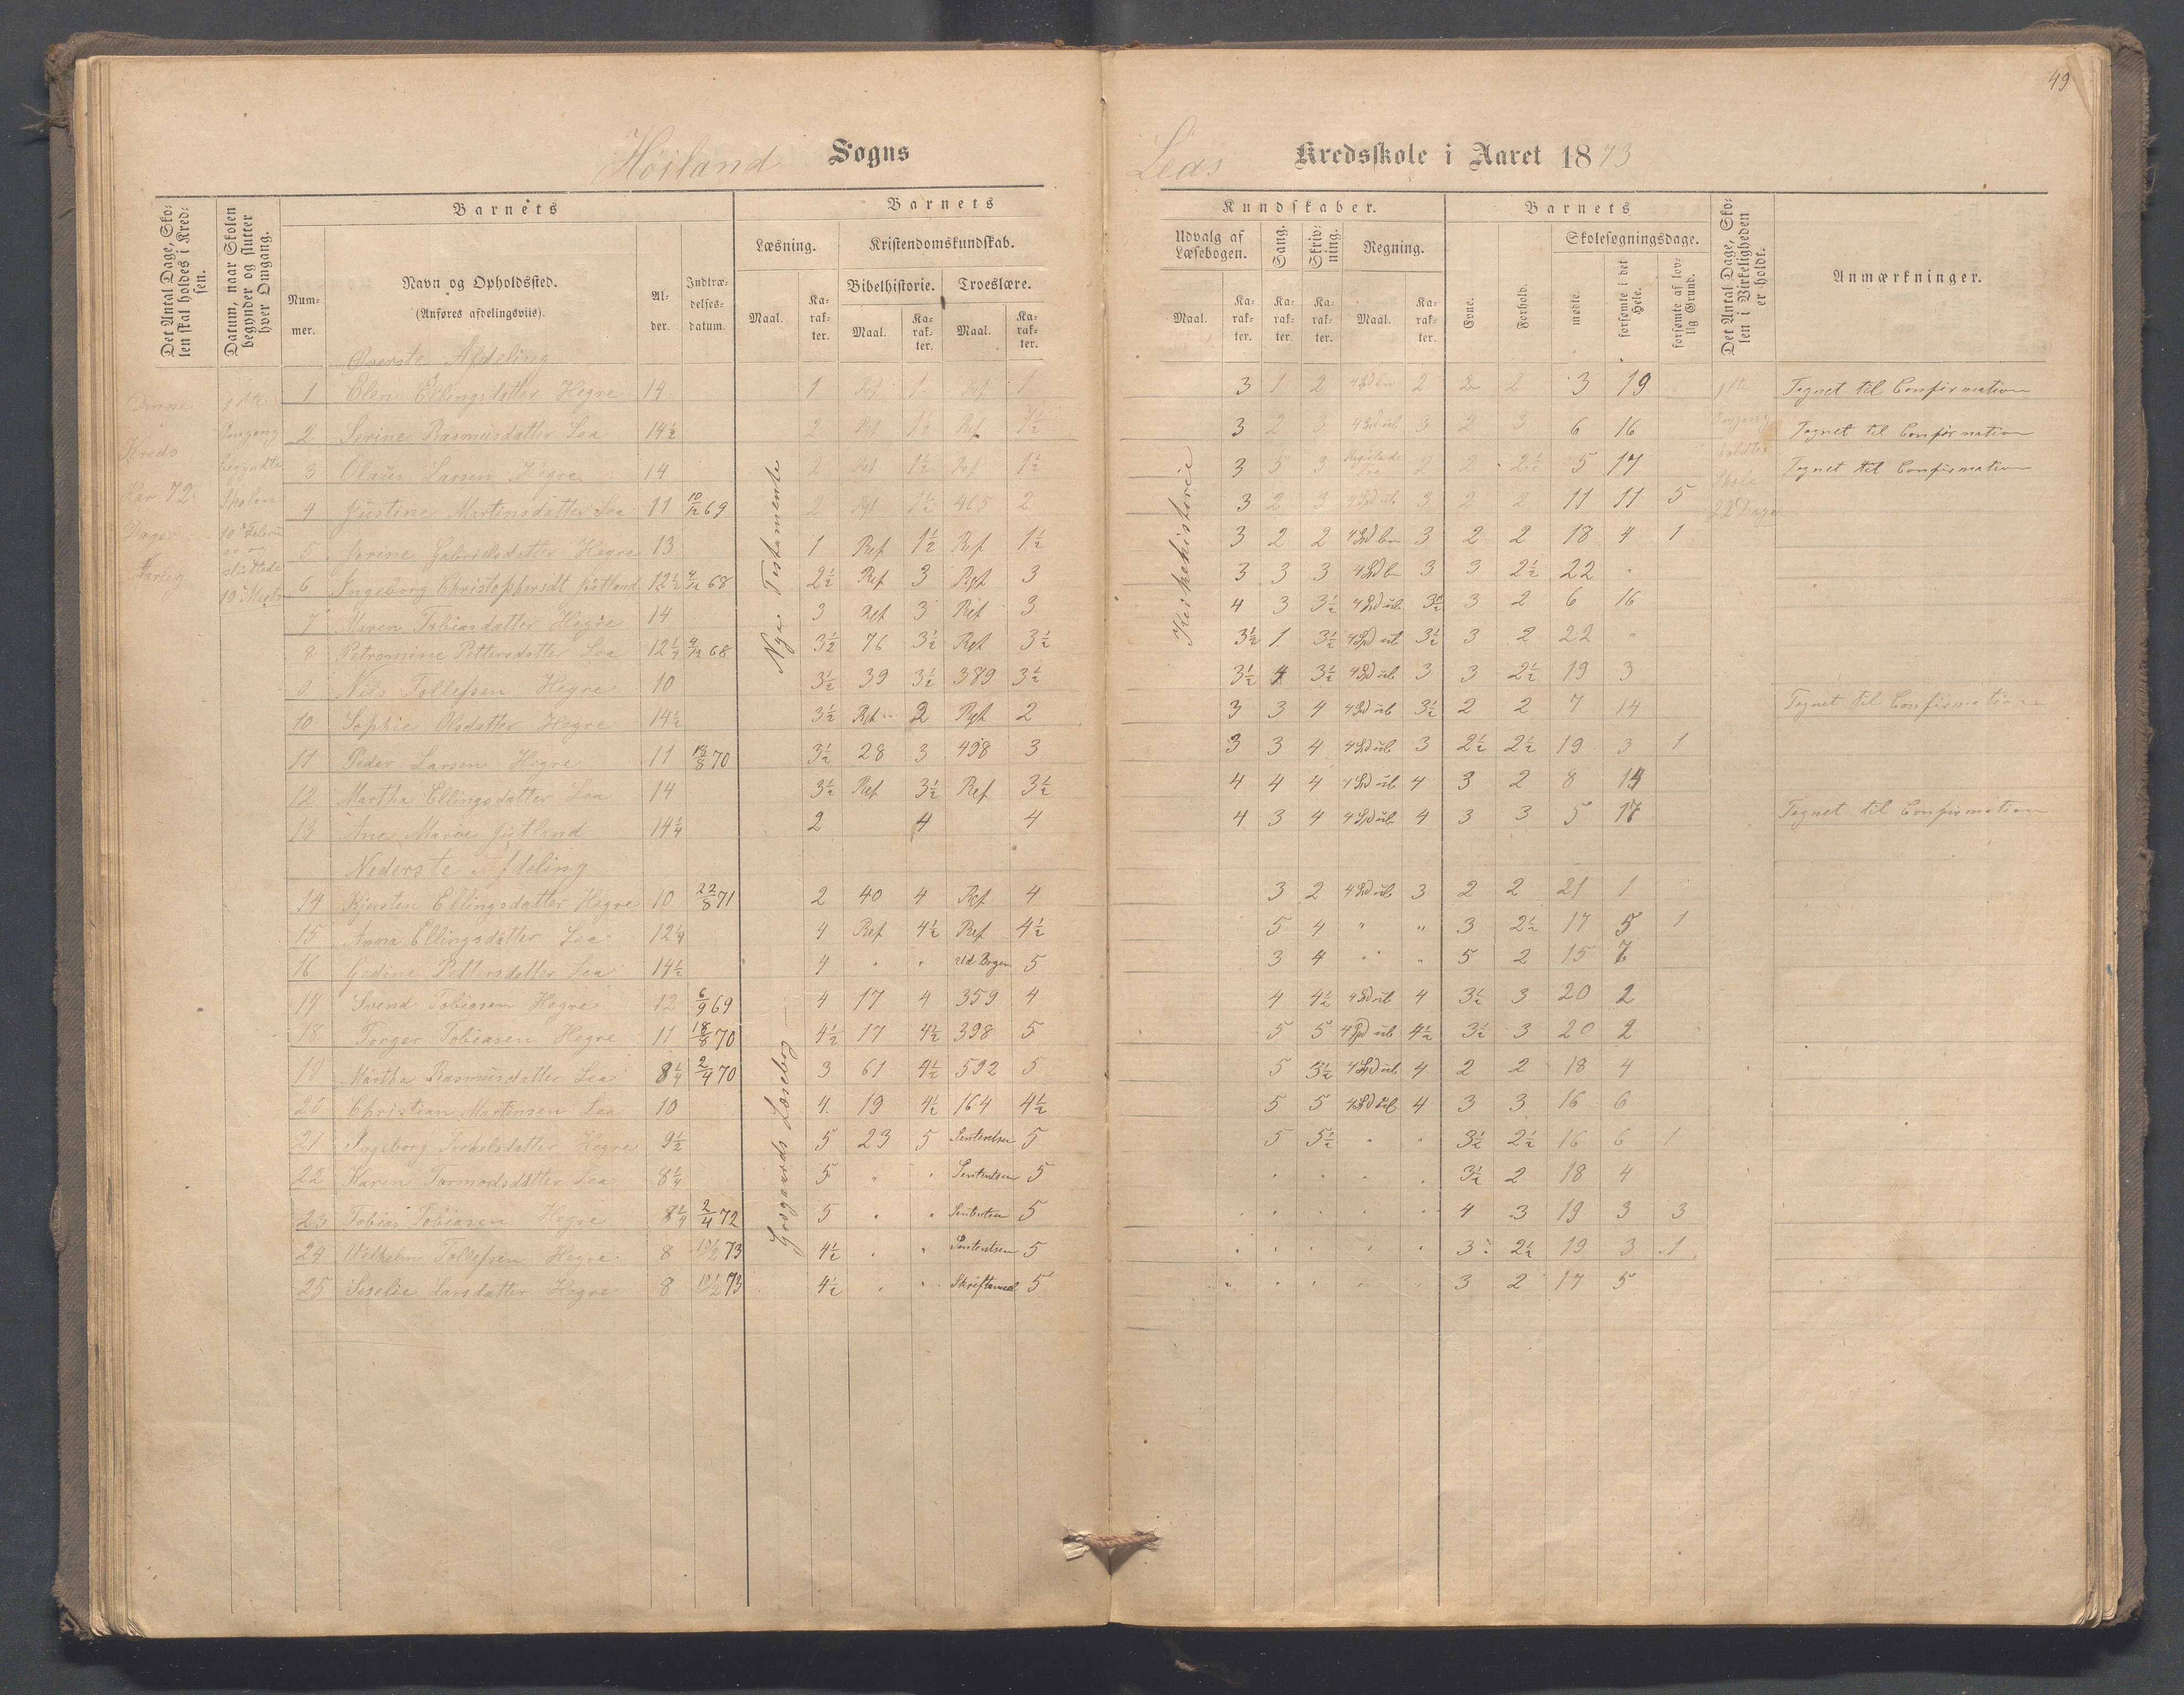 49
Høiland Sogns
Leas Kredsskole i Aaret 1873
Det Antal Dage, Skolen skal holdes i Kredsen.
Datum, naar Skolen begynder og slutter hver Omgang.
Barnets
Nummer.
Navn og Opholdssted.
(Anføres afdelingsviis).
Alder.
Indtrædelsesdatum.
Barnets
Læsning.
Kristendomskundskab.
Bibelhistorie. Troeslære.
Maal. Karakter. Maal. Karakter. Maal. Karakter.
Kundskaber.
Udvalg af Læsebogen.
Sang.
Skrivning.
Regning.
Maal. Karakter. Karakter. Karakter. Maal. Karakter.
Barnets
Evne.
Forhold.
Skolesøgningsdage.
mødte.
forsømte i det Hele.
forsømte af lovlig Grund.
Det Antal Dage, Skolen i Virkeligheden er holdt.
Anmærkninger.
Denne
Kreds
Har 72
Dage
Aarlig
1ste
Omgang
begyndte
Skolen
10de Febru
ar og
sluttede
19de Marts
Nye Testamente
Kirkehistorie
Grøgaards Læsebog —
1ste
Omgang
holdtes
Skole
22 Dage
Øverste Afdeling
1 Elen Ellingsdatter Hegre 14 1 Ref 1 Ref 1 3 1 2 2 2 2 3 19 Tegnet til Confirmation
2 Serine Rasmusdatter Lea 14½ 2 Ref 1½ Ref 1½ 3 2 3 4 Srd ub 3 2 3 6 16 Tegnet til Confirmation
3 Olaus Larsen Hegre 14 2 Ref 1½ Ref 1½ 3 3 3 Regulade Tre 2 2 2½ 5 17 Tegnet til Confirmation
4 Justine Martinsdatter Lea 11 10/12 69 2 Rgt 1½ 465 2 3 2 3 4 Srd ub 3 2 2 11 11 5
5 Jorine Gabrielsdatter Hegre 13 1 Ref 1½ Ref 1½ 3 2 2 4 Srd bn 3 2 2 18 4 1
6 Ingeborg Christophersdt Jøtland 12½ 68 2½ Ref 3 Rgt 3 3 3 3 4 Srd bn 3 3 2½ 22 "
7 Maren Tobiasdatter Hegre 14 3 Ref 3 Ref 3 4 3 3½ 4 Srd ub 3½ 3 2 6 16
8 Petromine Pettersdatter Lea 12¼ 68 3½ 76 3½ Rgt 3½ 3½ 1 3½ 4 Srd ub 3½ 3 2 22 "
9 Nils Tollefsen Hegre 10 3½ 39 3½ 389 3½ 3½ 4 3½ 4 Srd ub 3 3 2½ 19 3
10 Sophie Olsdatter Hegre 14½ 3½ Rgt 2 Rgt 2 3 3 4 4 Srd ub 3½ 2 2 7 14 Tegnet til Confirmation
11 Peder Larsen Hegre 11 18/8 70 3½ 28 3 498 3 3 3 4 4 Srd ub 3 2½ 2½ 19 3 1
12 Martha Ellingsdatter Lea 14 3½ Ref 3½ Ref 3½ 4 4 4 4 Srd ub 4 3 2 8 14
13 Ane Marie Jøtland 14¼ 2 4 4 4 3 4 4 Srd ub 4 3 3 5 17 Tegnet til Confirmation
Nederste Afdeling
14 Kjersten Ellingsdatter Hegre 10 22/8 71 2 40 4 Ref 4 3 2 4 Srd ub 3 2 2 21 1
15 Anna Ellingsdatter Lea 12¼ 4 Ref 4½ Ref 4½ 5 4 " " 3 2½ 17 5 1
16 Gedine Pettersdatter Lea 14½ 4 " " Ud Bogen 5 3 4 " " 5 2 15 7
17 Svend Tobiasen Hegre 12 6/9 69 4 17 4 359 4 4 4½ 4 Srd ub 4 3½ 3 20 2
18 Torger Tobiasen Hegre 11 18/8 70 4½ 17 4½ 398 5 5 5 4 Srd ub 4½ 3½ 3 20 2
19 Martha Rasmusdatter Lea 8¼ 2/4 70 3 61 4½ 592 5 5 3½ 4 Srd ub 4 2 2 18 4
20 Christian Martinsen Lea 10 4 19 4½ 164 4½ 5 5 4 Srd ub 4 3 3 16 6
21 Ingeborg Torkelsdatter Hegre 9½ 5 23 5 Sententsen 5 5 5½ " " 3½ 2½ 16 6 1
22 Karen Tormodsdatter Lea 8¼ 5 " " Sententsen 5 " " " " 3½ 2 18 4
23 Tobias Tobiasen Hegre 8¼ 2/4 72 5 " " Sententsen 5 " " " " " 4 3 19 3 3
24 Wilhelm Tollefsen Hegre 8 10/2 73 4½ " " Sententsen 5 " " " " " 3 2½ 19 3 1
25 Seselie Larsdatter Hegre 8 10/2 73 4½ " " 5 " " " " " 3 2 17 5